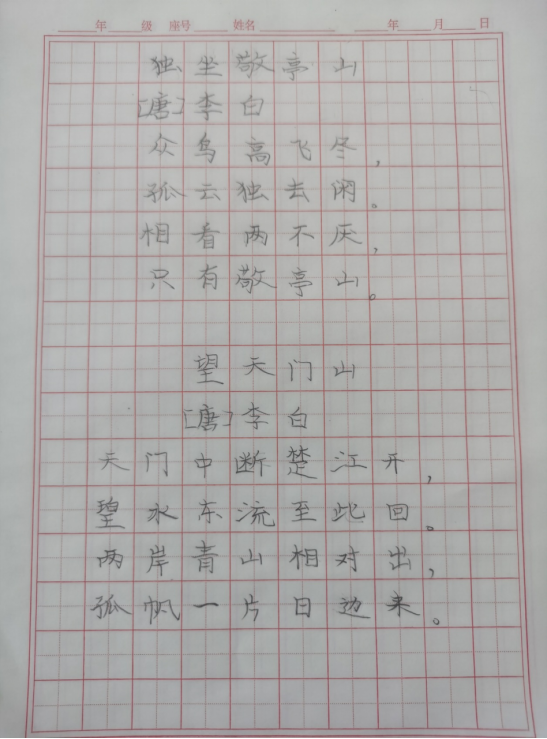 年 级 座号 姓名 年 月 日
独坐敬亭山
[唐]李白
众鸟高飞冬，
孤云独去闲。
相看两不厌，
只有敬亭山。
望天门山
[唐]李白
天门中断楚江开，
碧水东流至此回。
两岸青山相对出，
孤帆一片日边来。